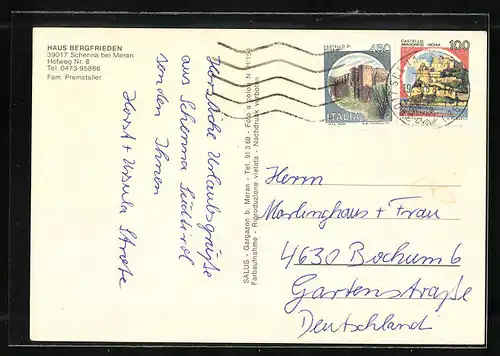 HAUS BERGFRIEDEN
39017 Schenna bei Meran
Hofweg Nr. 8
Tel. 0473-95866
Fam. Premstaller
Herzliche Urlaubsgrüße
aus Schenna Südtirol
senden Ihnen
Horst + Ursula Strote
SALUS - Gargazon b. Meran - Tel. 91 3 60 - Foto a colori N
Farbaufnahme - Riproduzione vietata - Nachdruck verboten
CASTELLO DI
450
ITALIA
CASTELLO
ARAGONESE - ISCHIA
100
Herrn
Marlinghaus + Frau
4630 Bochum 6
Gartenstraße
Deutschland